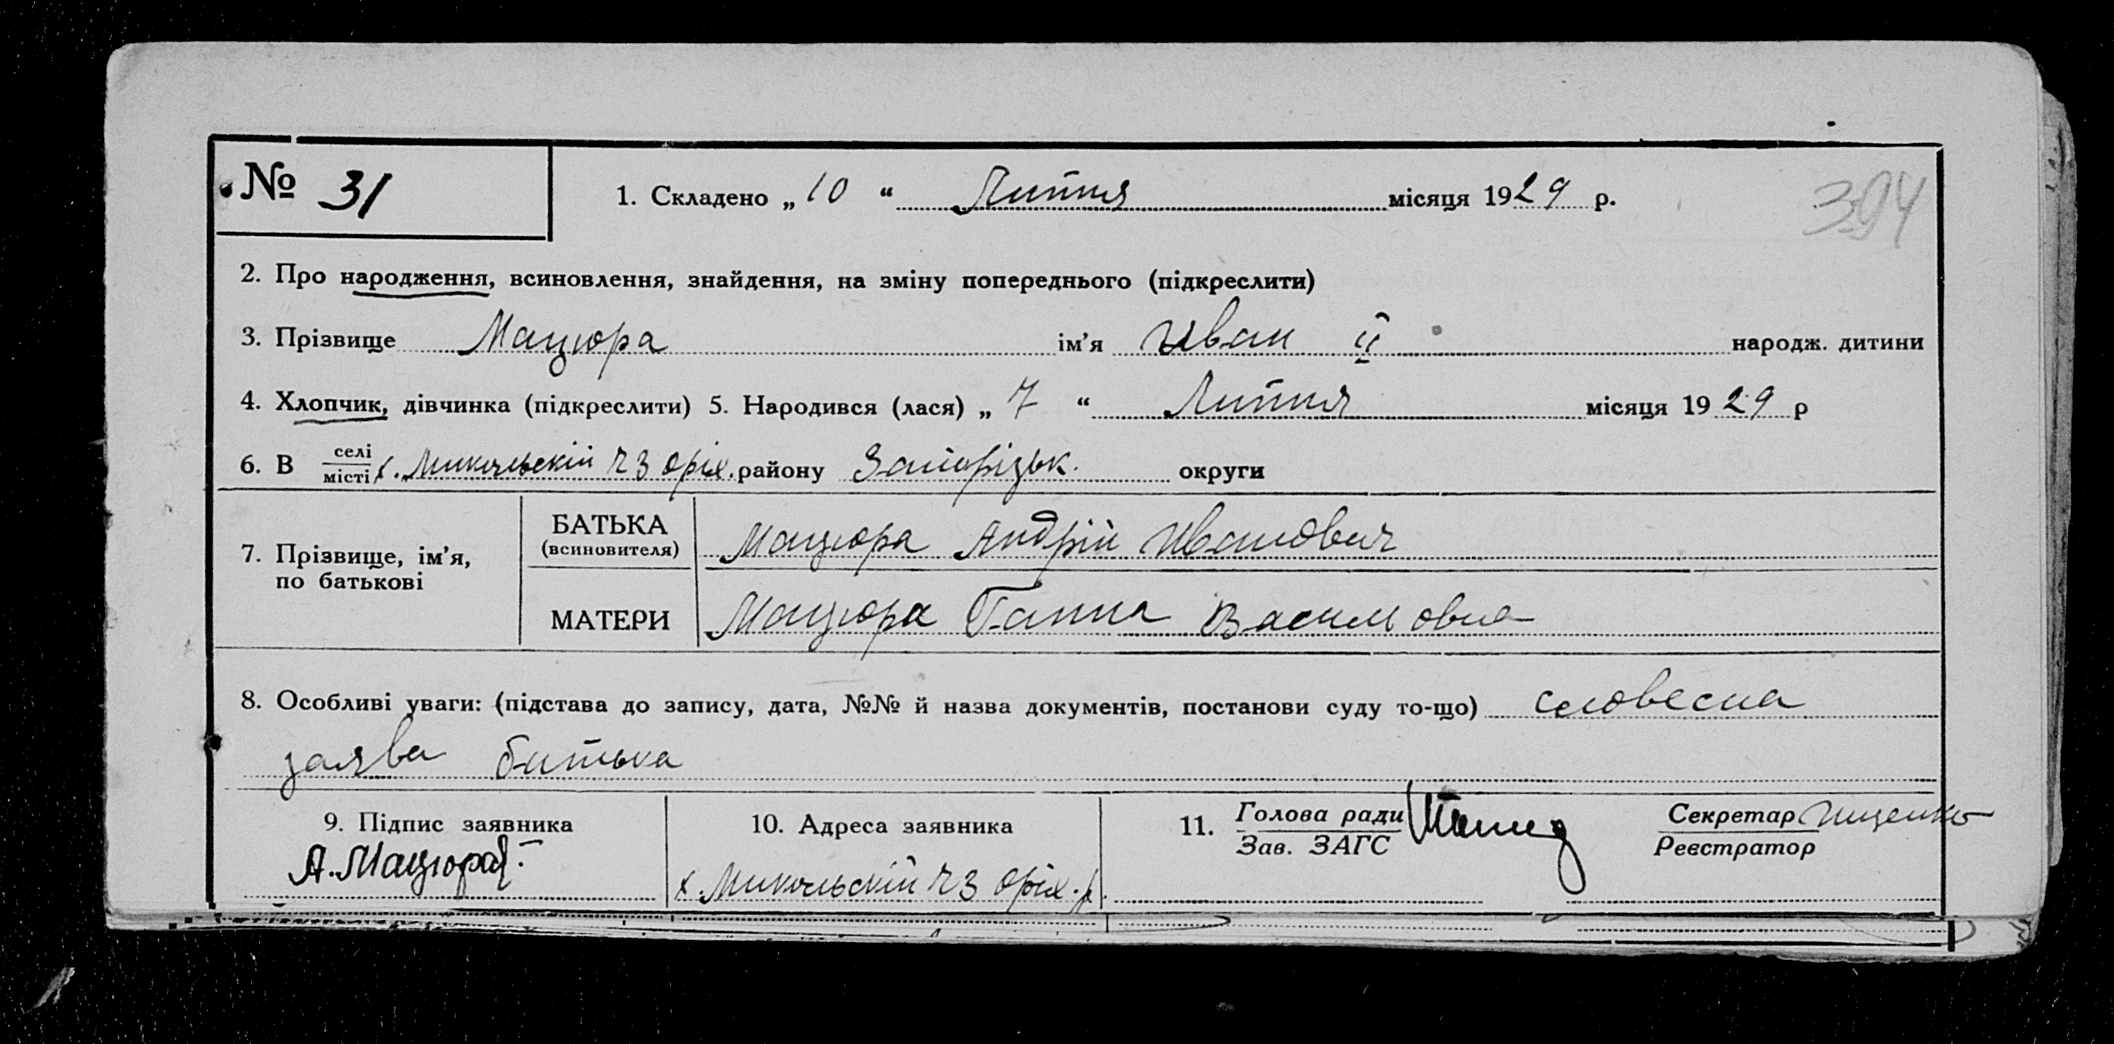 № 31
1. Складено „ 10 “ Липня місяця 1929 р.
394
2. Про народження, всиновлення, знайдення, на зміну попереднього (підкреслити)
3. Прізвище Мацюра ім’я Иван ІІ народж. дитини
4. Хлопчик, дівчинка (підкреслити) 5. Народився (лася) „ 7 “ Липня місяця 1929 р
6. В селі/місті х. Микольскій ч3 оріх. району Запорізьк. округи
7. Прізвище, ім’я, по батькові
БАТЬКА (всиновителя) Мацюра Андрій Иванович
МАТЕРИ Мацюра Ганна Василовна
8. Особливі уваги: (підстава до запису, дата, №№ й назва документів, постанови суду то-що) словесна
заява батька
9. Підпис заявника
А. Мацюра
10. Адреса заявника
х. Микольскій ч3 оріх. р.
11. Голова ради
Зав. ЗАГС
Секретар Ищенко
Реєстратор